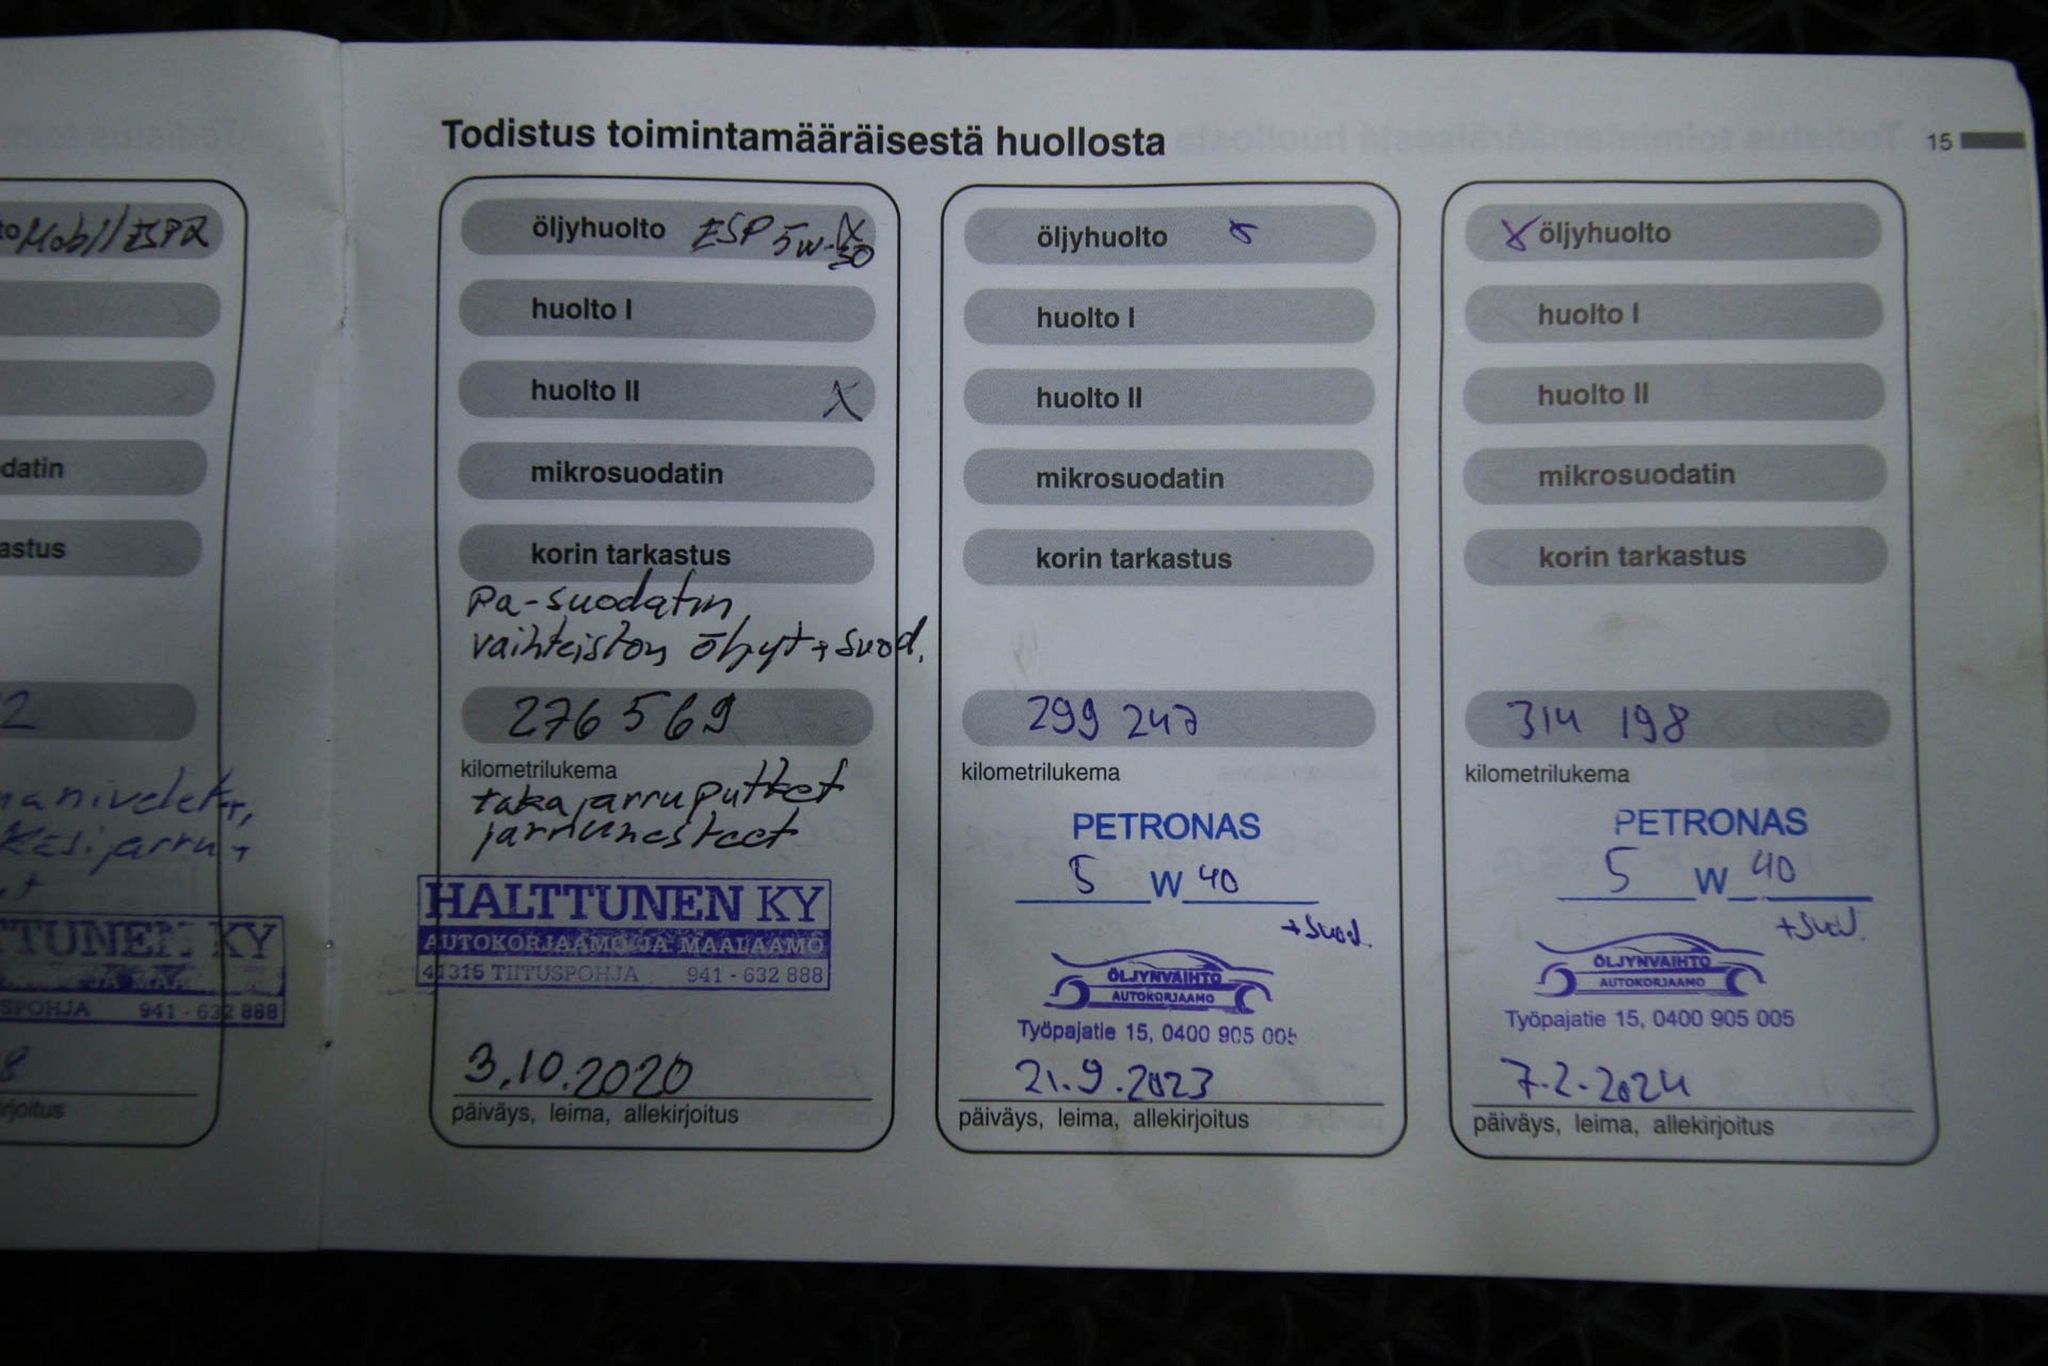 Todistus toimintamääräisestä huollosta
15
to Mobil ESP
datin
astus
2
nanivelet,
Käsijarru,
TTUNEN KY
JA MAA
SPOHJA 941 - 632 888
8
rjoitus
öljyhuolto ESP 5W-30 X
huolto I
huolto II X
mikrosuodatin
korin tarkastus
Pa-suodatin
vaihteiston öljyt + suod.
276 569
kilometrilukema
takajarruputket
jarrunesteet
HALTTUNEN KY
AUTOKORJAAMO JA MAALAAMO
41315 TIITUSPOHJA 941 - 632 888
3.10.2020
päiväys, leima, allekirjoitus
öljyhuolto x
huolto I
huolto II
mikrosuodatin
korin tarkastus
299 247
kilometrilukema
PETRONAS
5 W 40
+suod.
ÖLJYNVAIHTO
AUTOKORJAAMO
Työpajatie 15, 0400 905 005
21.9.2023
päiväys, leima, allekirjoitus
x öljyhuolto
huolto I
huolto II
mikrosuodatin
korin tarkastus
314 198
kilometrilukema
PETRONAS
5 W 40
+suod.
ÖLJYNVAIHTO
AUTOKORJAAMO
Työpajatie 15, 0400 905 005
7.2.2024
päiväys, leima, allekirjoitus